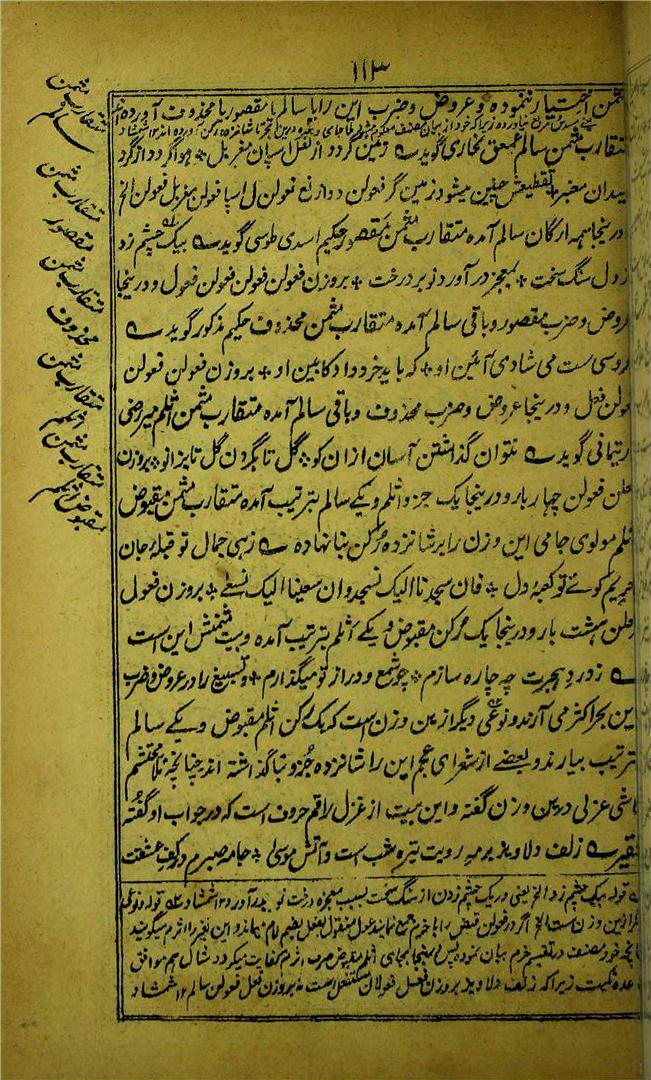 ۱۱۳
مثمن اختیار نموده و عروض و ضرب این را یا سالم یا مقصور یا محذوف آورده اند
متقارب مثمن سالم عمعق بخاری گوید زمین گردد از نعل اسپان مغربل * هوا گردد از گرد
میدان معنبر * تقطیعش چنین میشود زمین گر فعولن دد از نع فعولن ل اسپا فعولن مغربل فعولن الخ
درینجا همه ارکان سالم آمده متقارب مثمن مقصور حکیم اسدی طوسی گوید بیک چشم زد
از دل سنگ سخت * بمعجز درآورد نوبر درخت * بروزن فعولن فعولن فعولن فعول و درینجا
عروض و ضرب مقصور و باقی سالم آمده متقارب مثمن محذوف حکیم مذکور گوید
عروسی ست می شادی آئین او * که باید خرد داد کابین او * بروزن فعولن فعولن
فعولن فعل و درینجا عروض و ضرب محذوف و باقی سالم آمده متقارب مثمن اثلم میر رضی
ارتیمانی گوید نتوان گذاشتن آسان ازان کو * گل تا بگردن گل تا بزانو * بروزن
فعلن فعولن چهار بار و درینجا یک جزو اثلم و یکے سالم بترتیب آمده متقارب مثمن مقبوض
اثلم مولوی جامی این وزن را بر شانزده رکن بنا نهاده زهی جمال تو قبلهٔ جان
حریم کوئے تو کعبهٔ دل * فان سجدنا الیک نسجد وان سعینا الیک نسعے * بروزن فعول
فعلن هشت بار و درینجا یک رکن مقبوض و یکے اثلم بترتیب آمده و بیت مثمنش این است
ز درد هجرت چه چاره سازم * چو شمع و دور از تو میگذارم * و تسبیغ را در عروض و ضرب
این بحر اکثر می آرند و نوعی دیگر ازین وزن است که یک رکن اثلم مقبوض و یکے سالم
بترتیب بیارند و بعضے از شعرای عجم این را شانزده جزو بنا گذاشته اند چنانچه ملا محتشم
کاشی غزلی درین وزن گفته و این بیت از غزل راقم حروف است که در جواب او گفته
فقیر زلف دلاویز بر مه رویت تیره شب است و آتش موسی * جامه صبرم در کف عشقت
قوله بیک چشم زد الخ یعنی در یک چشم زدن از سنگ سخت بسبب معجزه درخت نو پیدا آورد ۱۲ شمشاد قوله و نوعی
دیگر ازین وزن است الخ اگر در فعولن قبض را با خرم جمع نمایند عول منقول بفعل بضم لام بماند و این تغیر را اثرم میگویند
متقارب مثمن
سالم
متقارب مثمن
مقصور
متقارب مثمن
محذوف
متقارب مثمن
اثلم
متقارب مثمن
مقبوض اثلم